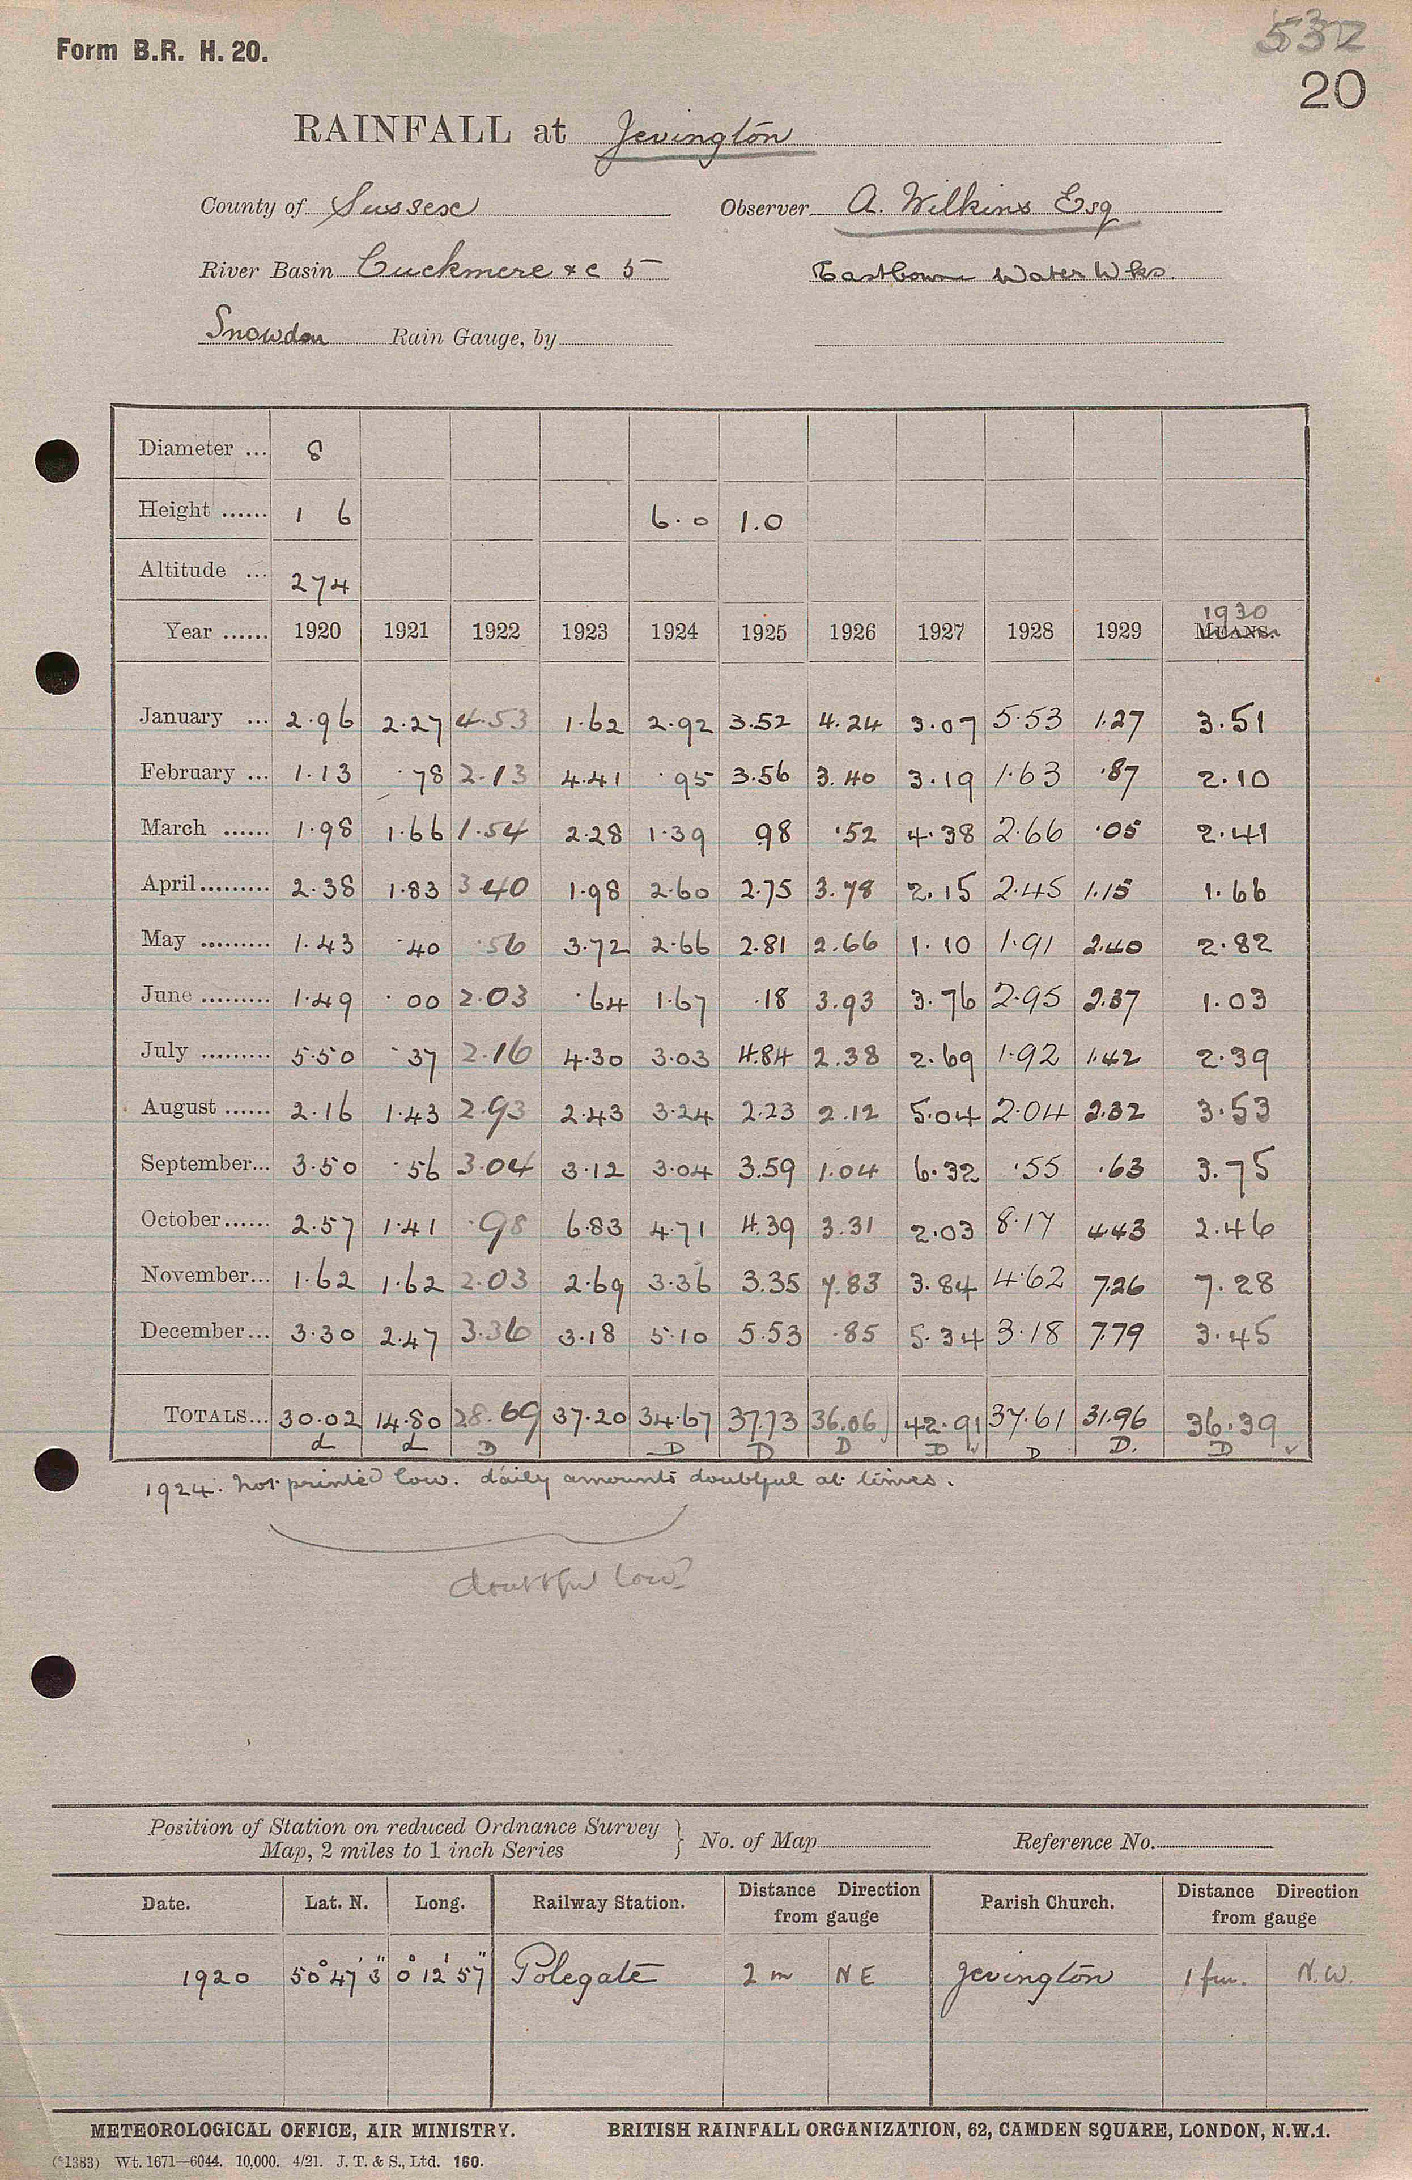 Form B.R. H. 20.
532
20
RAINFALL at Jevington
County of Sussex Observer A. Wilkins Esq
River Basin Cuckmere &c 5 Eastbourne Water Wks.
Snowdon Rain Gauge, by
Diameter ... 8
Height ...... 1 6 6.0 1.0
Altitude ... 274
1930
Year ...... 1920 1921 1922 1923 1924 1925 1926 1927 1928 1929 MEANS.
January ... 2.96 2.27 4.53 1.62 2.92 3.52 4.24 3.07 5.53 1.27 3.51
February ... 1.13 .78 2.13 4.41 .95 3.56 3.40 3.19 1.63 .87 2.10
March ...... 1.98 1.66 1.54 2.28 1.39 98 .52 4.38 2.66 .05 2.41
April......... 2.38 1.83 3 40 1.98 2.60 2.75 3.78 2.15 2.45 1.15 1.66
May ......... 1.43 .40 .56 3.72 2.66 2.81 2.66 1.10 1.91 2.40 2.82
June ......... 1.49 .00 2.03 .64 1.67 .18 3.93 3.76 2.95 2.37 1.03
July ......... 5.50 .37 2.16 4.30 3.03 4.84 2.38 2.69 1.92 1.42 2.39
August ...... 2.16 1.43 2.93 2.43 3.24 2.23 2.12 5.04 2.04 2.32 3.53
September... 3.50 .56 3.04 3.12 3.04 3.59 1.04 6.32 .55 .63 3.75
October...... 2.57 1.41 .98 6.83 4.71 4.39 3.31 2.03 8.17 4.43 2.46
November... 1.62 1.62 2.03 2.69 3.36 3.35 7.83 3.84 4.62 7.26 7.28
December... 3.30 2.47 3.36 3.18 5.10 5.53 .85 5.34 3.18 7.79 3.45
TOTALS... 30.02 14.80 28.69 37.20 34.67 37.73 36.06 42.91 37.61 31.96 36.39
d d D D D D D D D. D
1924. not printed low. daily amounts doubtful at times.
doubtful low?
Position of Station on reduced Ordnance Survey
Map, 2 miles to 1 inch Series } No. of Map Reference No.
Date. Lat. N. Long. Railway Station. Distance Direction from gauge Parish Church. Distance Direction from gauge
1920 50° 47' 3" 0° 12' 57" Polegate 2 m NE Jevington 1 fur. N.W.
METEOROLOGICAL OFFICE, AIR MINISTRY. BRITISH RAINFALL ORGANIZATION, 62, CAMDEN SQUARE, LONDON, N.W.1.
(*1383) Wt. 1671—6044. 10,000. 4/21. J. T. & S., Ltd. 160.